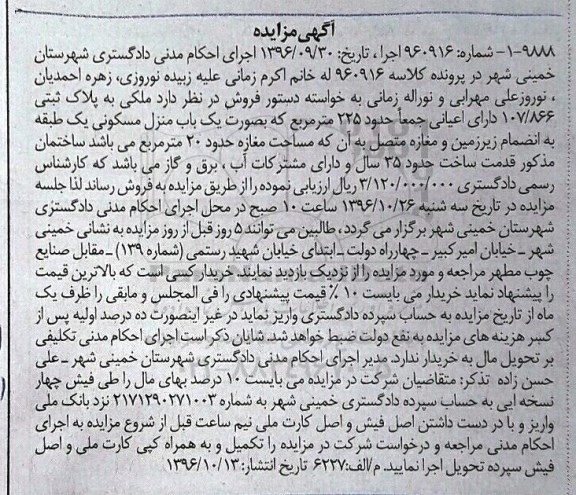 آگهی مزایده
۱-۹۸۸۸- شماره: ۹۶۰۹۱۶ اجرا ، تاریخ: ۱۳۹۶/۰۹/۳۰ اجرای احکام مدنی دادگستری شهرستان
خمینی شهر در پرونده کلاسه ۹۶۰۹۱۶ له خانم اکرم زمانی علیه زبیده نوروزی، زهره احمدیان
، نوروزعلی مهرابی و نوراله زمانی به خواسته دستور فروش در نظر دارد ملکی به پلاک ثبتی
۱۰۷/۸۶۶ دارای اعیانی جمعاً حدود ۲۲۵ مترمربع که بصورت یک باب منزل مسکونی یک طبقه
به انضمام زیرزمین و مغازه متصل به آن که مساحت مغازه حدود ۲۰ مترمربع می باشد ساختمان
مذکور قدمت ساخت حدود ۳۵ سال و دارای مشترکات آب ، برق و گاز می باشد که کارشناس
رسمی دادگستری ۳/۱۲۰/۰۰۰/۰۰۰ ریال ارزیابی نموده را از طریق مزایده به فروش رساند لذا جلسه
مزایده در تاریخ سه شنبه ۱۳۹۶/۱۰/۲۶ ساعت ۱۰ صبح در محل اجرای احکام مدنی دادگستری
شهرستان خمینی شهر برگزار می گردد، طالبین می توانند ۵ روز قبل از روز مزایده به نشانی خمینی
شهر ـ خیابان امیرکبیر ـ چهارراه دولت ـ ابتدای خیابان شهید رستمی (شماره ۱۳۹) ـ مقابل صنایع
چوب مطهر مراجعه و مورد مزایده را از نزدیک بازدید نمایند. خریدار کسی است که بالاترین قیمت
را پیشنهاد نماید خریدار می بایست ۱۰ ٪ قیمت پیشنهادی را فی المجلس و مابقی را ظرف یک
ماه از تاریخ مزایده به حساب سپرده دادگستری واریز نماید در غیر اینصورت ده درصد اولیه پس از
کسر هزینه های مزایده به نفع دولت ضبط خواهد شد. شایان ذکر است اجرای احکام مدنی تکلیفی
بر تحویل مال به خریدار ندارد. مدیر اجرای احکام مدنی دادگستری شهرستان خمینی شهر ـ علی
حسن زاده تذکر: متقاضیان شرکت در مزایده می بایست ۱۰ درصد بهای مال را طی فیش چهار
نسخه ایی به حساب سپرده دادگستری خمینی شهر به شماره ۲۱۷۱۲۹۰۲۷۱۰۰۳ نزد بانک ملی
واریز و با در دست داشتن اصل فیش و اصل کارت ملی نیم ساعت قبل از شروع مزایده به اجرای
احکام مدنی مراجعه و درخواست شرکت در مزایده را تکمیل و به همراه کپی کارت ملی و اصل
فیش سپرده تحویل اجرا نمایید. م/الف:۶۲۲۷ تاریخ انتشار: ۱۳۹۶/۱۰/۱۳